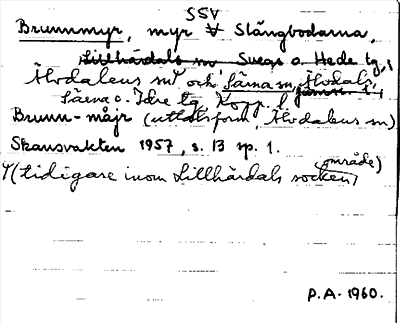 SSV
Brunnmyr, myr V Stångbodarna,
Lillhärdals sn Svegs o. Hede tg,
Älvdalens sn och Särna sn, Älvdals,
Särna o. Idre tg, Kopp. l
Brunn-måjr (uttalsform, Älvdalens sn)
Skansvakten 1957, s. 13 sp. 1.
(tidigare inom Lillhärdals socken)
område)
P.A. 1960.